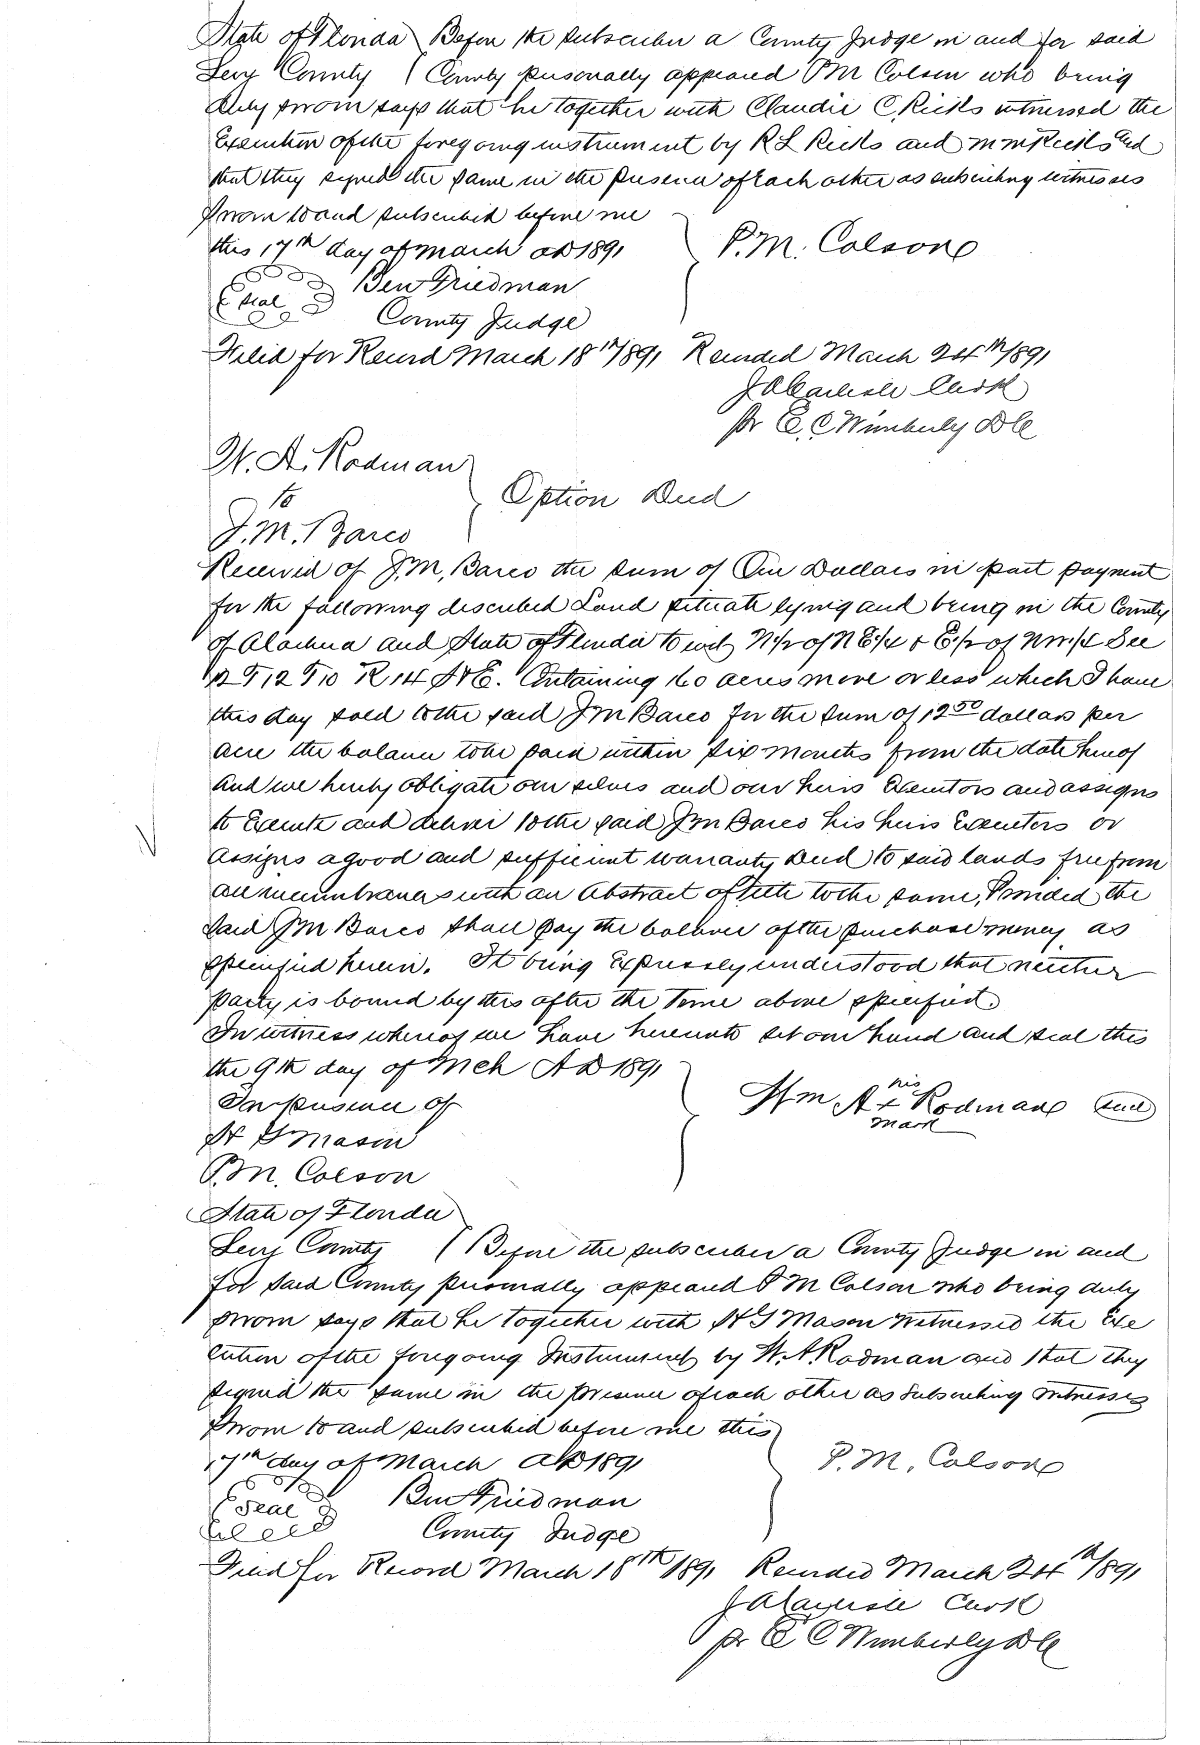 State of Florida Before the subscriber a County Judge in and for said
Levy County County personally appeared P M Colson who being
duly sworn says that he together with Claudie C. Ricks witnessed the
Execution of the foregoing instrument by R L Ricks and M M Ricks and
that they signed the same in the presence of Each other as subscribing witnesses
Sworn to and subscribed before me
this 17th day of March AD 1891
P. M. Colson
Seal
Ben Friedman
County Judge
Filed for Record March 18th/1891 Recorded March 24th/1891
J A Carlisle Clerk
pr E. C Wimberly D C
W. A. Rodman
to
J. M. Barco
Option Deed
Received of J. M. Barco the sum of One Dollars in part payment
for the following described Land situate lying and being in the County
of Alachua and State of Florida to wit N 1/2 of N E 1/4 & E 1/2 of N W 1/4 Sec
12 T 10 R 14 S & E. Containing 160 acres more or less which I have
this day sold to the said J M Barco for the sum of 12 50 dollars per
acre the balance to be paid within six months from the date hereof
and we hereby obligate our selves and our heirs Executors and assigns
to Execute and deliver to the said J M Barco his heirs Executors or
Assigns a good and sufficient warranty Deed to said lands free from
all incumbrances with an Abstract of title to the same, Provided the
said J M Barco shall pay the balance of the purchase money as
specified herein. It being Expressly understood that neither
party is bound by this after the Time above specified.
In witness whereof we have hereunto set our hand and seal this
the 9th day of Mch A D 1891
In presence of
H G Mason
P. M. Colson
his
Wm A x Rodman Seal
mark
State of Florida
Levy County Before the subscriber a County Judge in and
for said County personally appeared P M Colson who being duly
sworn says that he together with H G Mason Witnessed the Exe
cution of the foregoing Instrument by W. A. Rodman and that they
signed the same in the presence of each other as Subscribing Witnesses
Sworn to and subscribed before me this
17th day of March AD 1891
P. M. Colson
Seal
Ben Friedman
County Judge
Filed for Record March 18th/1891 Recorded March 24th/1891
J A Carlisle Clerk
pr E C Wimberly D C